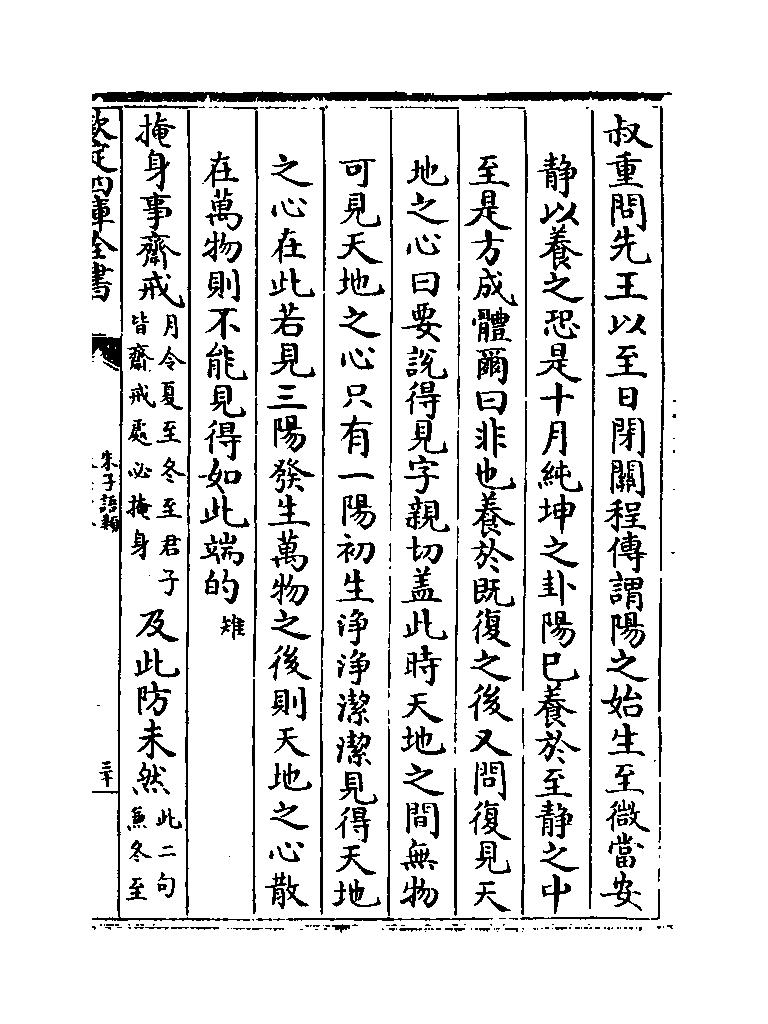 叔重問先王以至日閉關程傳謂陽之始生至微當安
靜以養之恐是十月純坤之卦陽已養於至靜之中
至是方成體爾曰非也養於既復之後又問復見天
地之心曰要說得見字親切盖此時天地之間無物
可見天地之心只有一陽初生淨淨潔潔見得天地
之心在此若見三陽發生萬物之後則天地之心散
在萬物則不能見得如此端的雉
掩身事齋戒月令夏至冬至君子皆齋戒處必掩身及此防未然此二句兼冬至
欽定四庫全書
朱子語類
三十